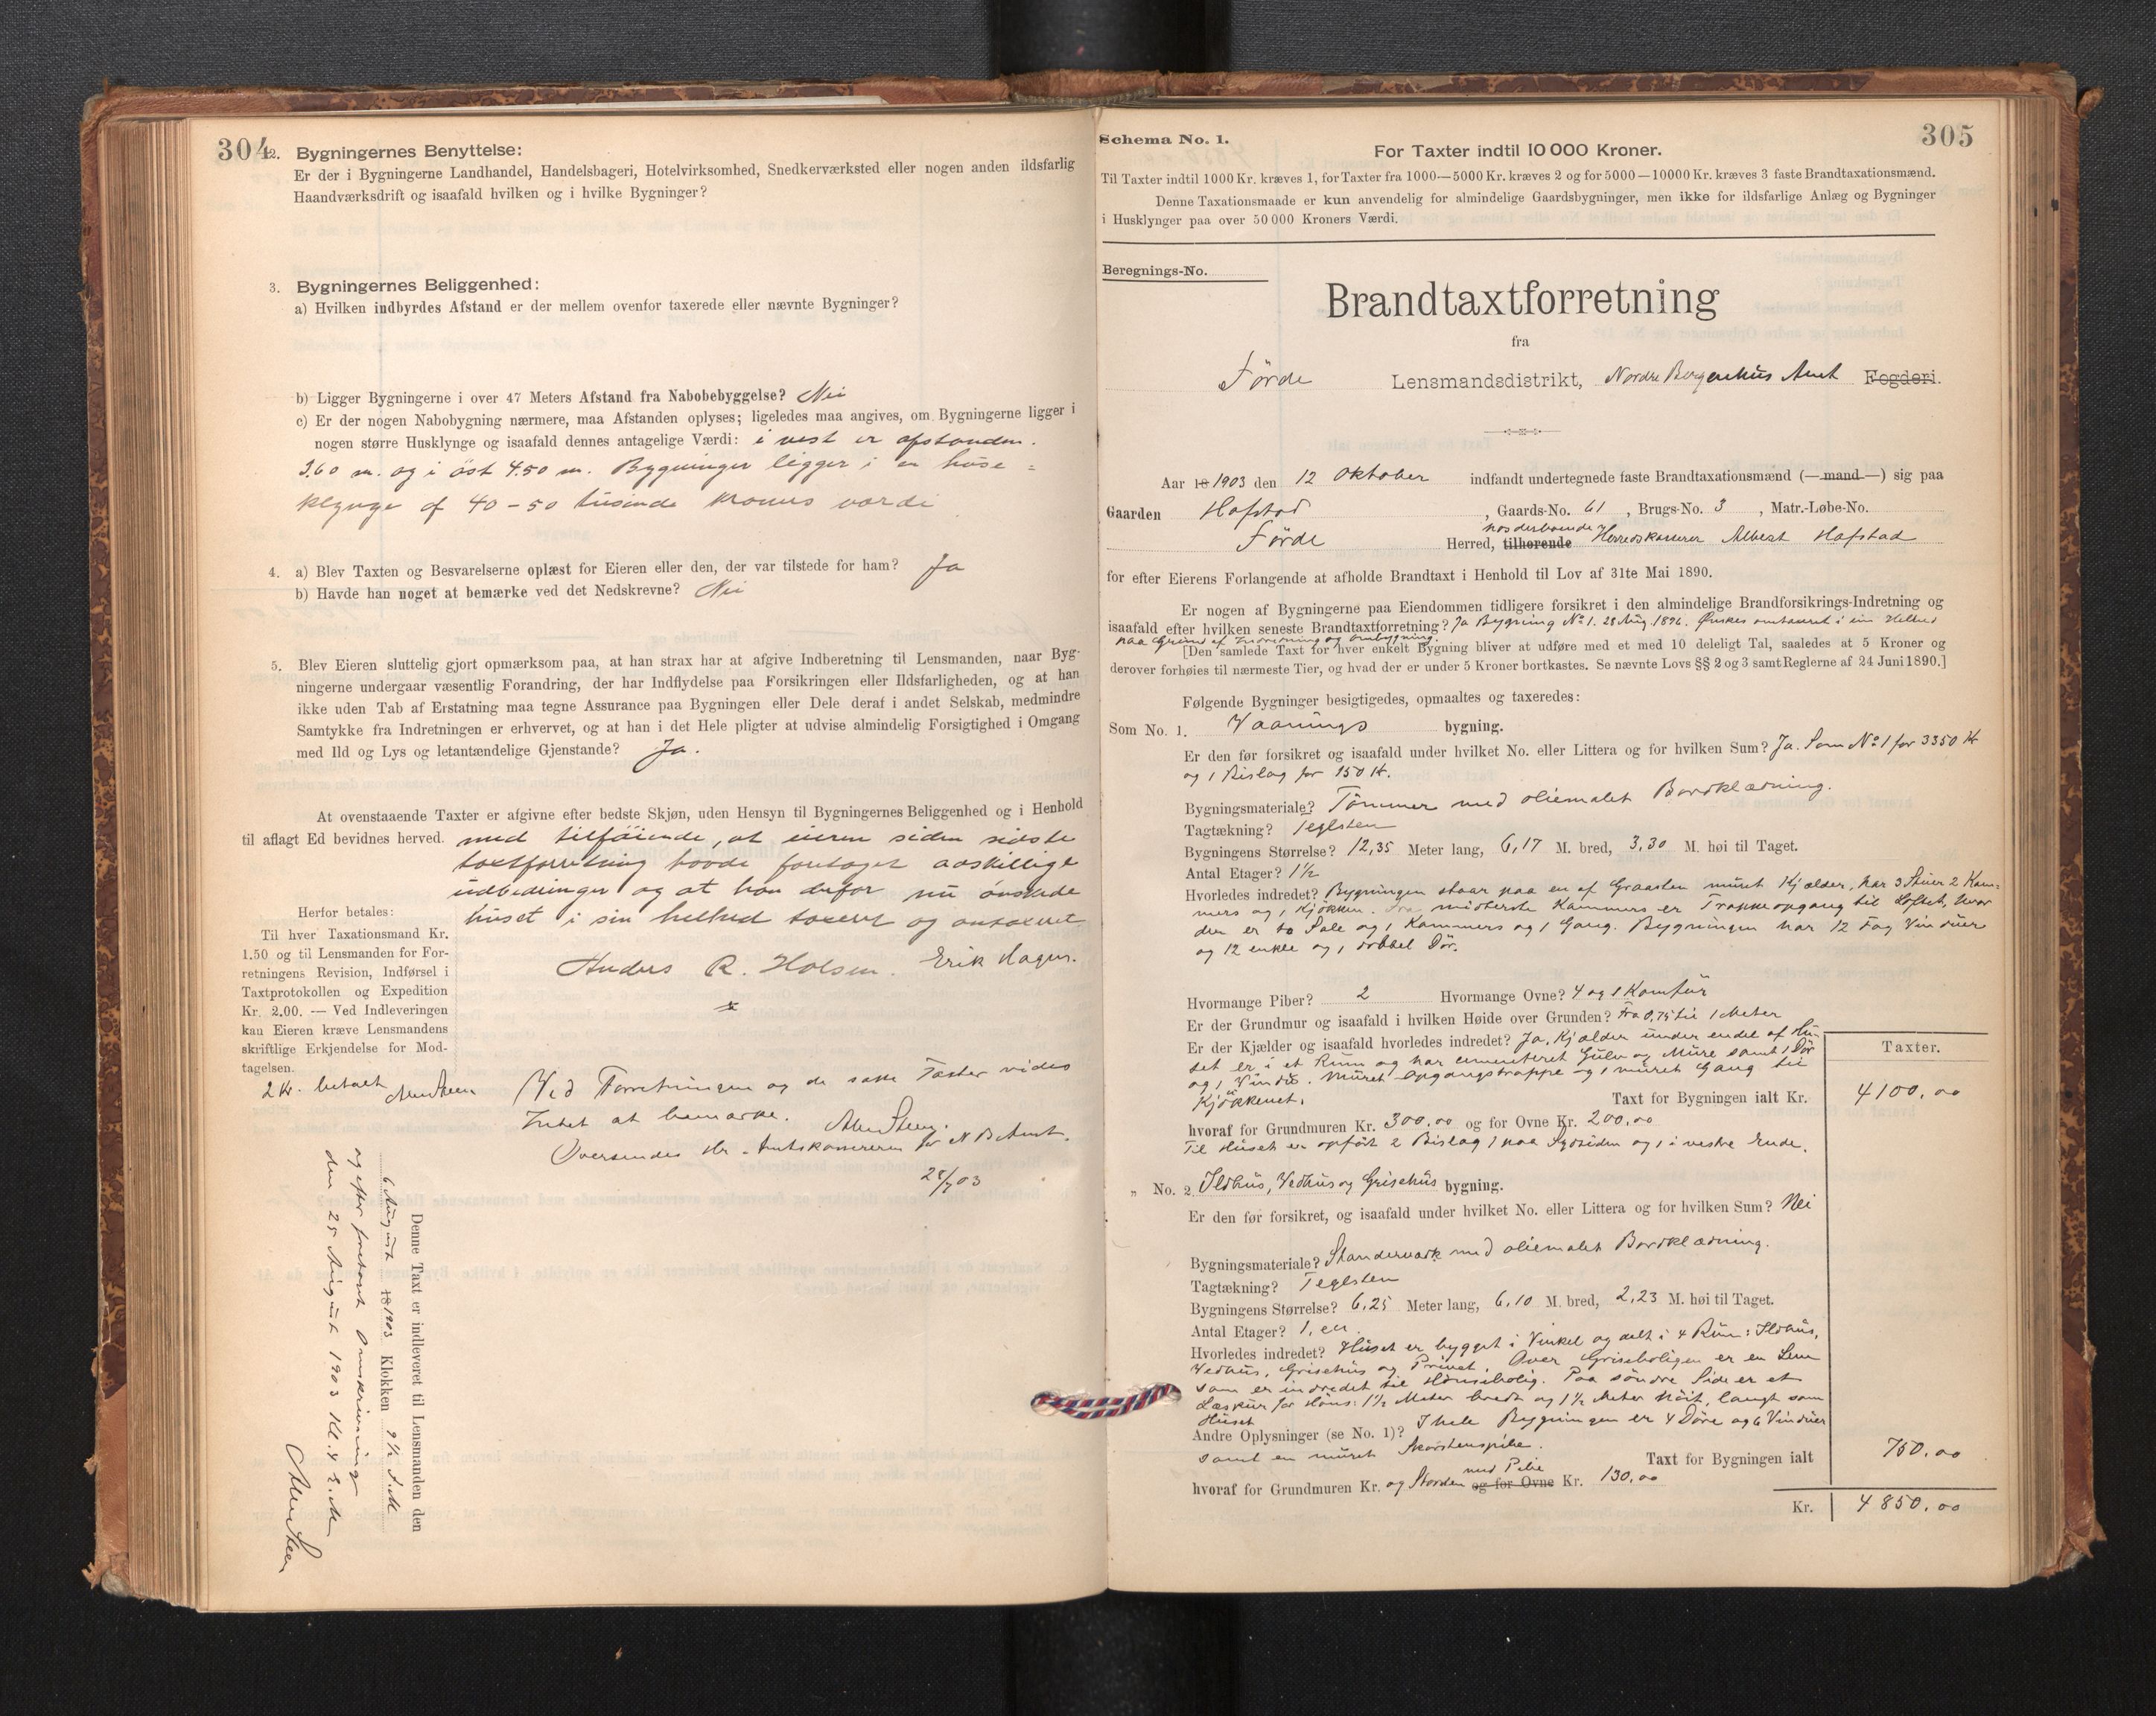 304
2. Bygningernes Benyttelse:
Er der i Bygningerne Landhandel, Handelsbageri, Hotelvirksomhed, Snedkerværksted eller nogen anden ildsfarlig
Haandværksdrift og isaafald hvilken og i hvilke Bygninger?
3. Bygningernes Beliggenhed:
a) Hvilken indbyrdes Afstand er der mellem ovenfor taxerede eller nævnte Bygninger?
b) Ligger Bygningerne i over 47 Meters Afstand fra Nabobebyggelse? Nei
c) Er der nogen Nabobygning nærmere, maa Afstanden oplyses; ligeledes maa angives, om Bygningerne ligger i
nogen større Husklynge og isaafald dennes antagelige Værdi: i vest er afstanden
3.60 m. og i öst 4.50 m. Bygninger ligger i en huse=
klynge af 40-50 tusinde kroners værdi
4. a) Blev Taxten og Besvarelserne oplæst for Eieren eller den, der var tilstede for ham? Ja
b) Havde han noget at bemærke ved det Nedskrevne? Nei
5. Blev Eieren sluttelig gjort opmærksom paa, at han strax har at afgive Indberetning til Lensmanden, naar Byg-
ningerne undergaar væsentlig Forandring, der har Indflydelse paa Forsikringen eller Ildsfarligheden, og at han
ikke uden Tab af Erstatning maa tegne Assurance paa Bygningen eller Dele deraf i andet Selskab, medmindre
Samtykke fra Indretningen er erhvervet, og at han i det Hele pligter at udvise almindelig Forsigtighed i Omgang
med Ild og Lys og letantændelige Gjenstande? Ja.
At ovenstaaende Taxter er afgivne efter bedste Skjøn, uden Hensyn til Bygningernes Beliggenhed og i Henhold
til aflagt Ed bevidnes herved. med tilföiende, at eieren siden sidste
taxtforretning havde foretaget adskillige
udbedringer og at han derfor nu önskede
huset i sin helhed taxeret og omtaxeret
Anders R. Holsen. Erik Hagen.
Herfor betales:
Til hver Taxationsmand Kr.
1.50 og til Lensmanden for For-
retningens Revision, Indførsel i
Taxtprotokollen og Expedition
Kr. 2.00. — Ved Indleveringen
kan Eieren kræve Lensmandens
skriftlige Erkjendelse for Mod-
tagelsen.
2 Kr. betalt
Ved Forretningen og de satte Taxter vides
Intet at bemærke.
Oversendes Hr. Amtskassereren for N B Amt.
Denne Taxt er indleveret til Lensmanden den
6 August 18 1903 Klokken 9½ F.M
og efter foretaget Omskrivning
den 25 August 1903 Kl. 4 E.M
305
Schema No. 1.
For Taxter indtil 10 000 Kroner.
Til Taxter indtil 1000 Kr. kræves 1, for Taxter fra 1000—5000 Kr. kræves 2 og for 5000—10000 Kr. kræves 3 faste Brandtaxationsmænd.
Denne Taxationsmaade er kun anvendelig for almindelige Gaardsbygninger, men ikke for ildsfarlige Anlæg og Bygninger
i Husklynger paa over 50 000 Kroners Værdi.
Beregnings-No.
Brandtaxtforretning
fra
Förde Lensmandsdistrikt, Nordre Bergenhus Amt Fogderi.
Aar 18 1903 den 12 Oktober indfandt undertegnede faste Brandtaxationsmænd (—mand—) sig paa
Gaarden Hafstad, Gaards-No. 61, Brugs-No. 3, Matr.-Løbe-No.
Förde Herred, tilhørende hos derboende Herredskasserer Albert Hafstad
for efter Eierens Forlangende at afholde Brandtaxt i Henhold til Lov af 31te Mai 1890.
Er nogen af Bygningerne paa Eiendommen tidligere forsikret i den almindelige Brandforsikrings-Indretning og
isaafald efter hvilken seneste Brandtaxtforretning? Ja Bygning No 1. 28 Aug. 1896. Önskes omtaxeret i sin Helhed
paa Grund af Indredning og Ombygning.
[Den samlede Taxt for hver enkelt Bygning bliver at udføre med et med 10 deleligt Tal, saaledes at 5 Kroner og
derover forhøies til nærmeste Tier, og hvad der er under 5 Kroner bortkastes. Se nævnte Lovs §§ 2 og 3 samt Reglerne af 24 Juni 1890.]
Følgende Bygninger besigtigedes, opmaaltes og taxeredes:
Som No. 1. Vaanings bygning.
Er den før forsikret og isaafald under hvilket No. eller Littera og for hvilken Sum? Ja. Som No 1 for 3350 Kr
og 1 Bislag for 150 Kr.
Bygningsmateriale? Tömmer med oliemalet Bordklædning.
Tagtækning? Teglsten
Bygningens Størrelse? 12,35 Meter lang, 6,17 M. bred, 3,30 M. høi til Taget.
Antal Etager? 1½
Hvorledes indredet? Bygningen staar paa en af Graasten muret Kjælder, har 3 Stuer 2 Kam-
mers og 1 Kjökken. Fra midterste Kammers er Trappeopgang til Loftet, hvor
der er to Sale og 1 Kammers og 1 Gang. Bygningen har 12 Fag Vinduer
og 12 enkle og 1 dobbel Dör.
Hvormange Piber? 2 Hvormange Ovne? 4 og 1 Komfür
Er der Grundmur og isaafald i hvilken Høide over Grunden? Fra 0,75 til 1 Meter
Er der Kjælder og isaafald hvorledes indredet? Ja, Kjælder under endel af Hu-
set er i et Rum og har cementeret Gulv og Mure samt 1 Dör
og 1 Vindu. Muret Opgangstrappe og 1 muret Gang til
Kjökkenet.
Taxter.
Taxt for Bygningen ialt Kr. 4100,00
hvoraf for Grundmuren Kr. 300,00 og for Ovne Kr. 200,00
Til Huset er opfört 2 Bislag 1 paa Sydsiden og 1 i vestre Ende.
„ No. 2 Ildhus, Vedhus og Grisehus bygning.
Er den før forsikret, og isaafald under hvilket No. eller Littera og for hvilken Sum? Nei
Bygningsmateriale? Standerværk med oliemalet Bordklædning.
Tagtækning? Teglsten
Bygningens Størrelse? 6,25 Meter lang, 6,10 M. bred, 2,23 M. høi til Taget.
Antal Etager? 1, en
Hvorledes indredet? Huset er bygget i Vinkel og delt i 4 Rum: Ildhus,
Vedhus, Grisehus og Privet. Over Griseboligen er en Lem
som er indredet til Hönsebolig. Paa söndre Side er et
Læskur for Höns: 1½ Meter bredt og 1½ Meter höit, langt som
Huset
Andre Oplysninger (se No. 1)? I hele Bygningen er 4 Döre og 6 Vinduer
samt en muret Skorstenspibe.
Taxt for Bygningen ialt 750,00
hvoraf for Grundmuren Kr. og Storsten med Pibe og for Ovne Kr. 130,00
Kr. 4850,00